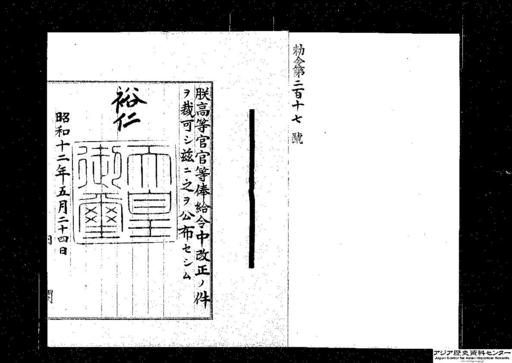 勅令第二百十七號
朕高等官官等俸給令中改正ノ件
ヲ裁可シ茲ニ之ヲ公布セシム
裕仁
天皇
御璽
昭和十二年五月二十四日
アジア歴史資料センター
Japan Center for Asian Historical Records